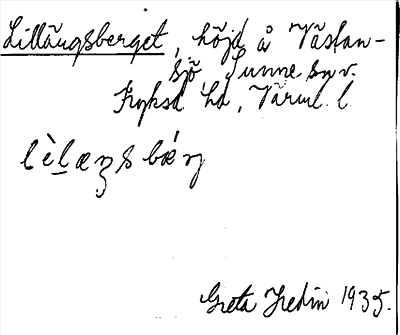 Lillängsberget, höjd å Västan-
sjö Sunne sn v.
Fryksd hd, Värml. l
Greta Hedin 1935.